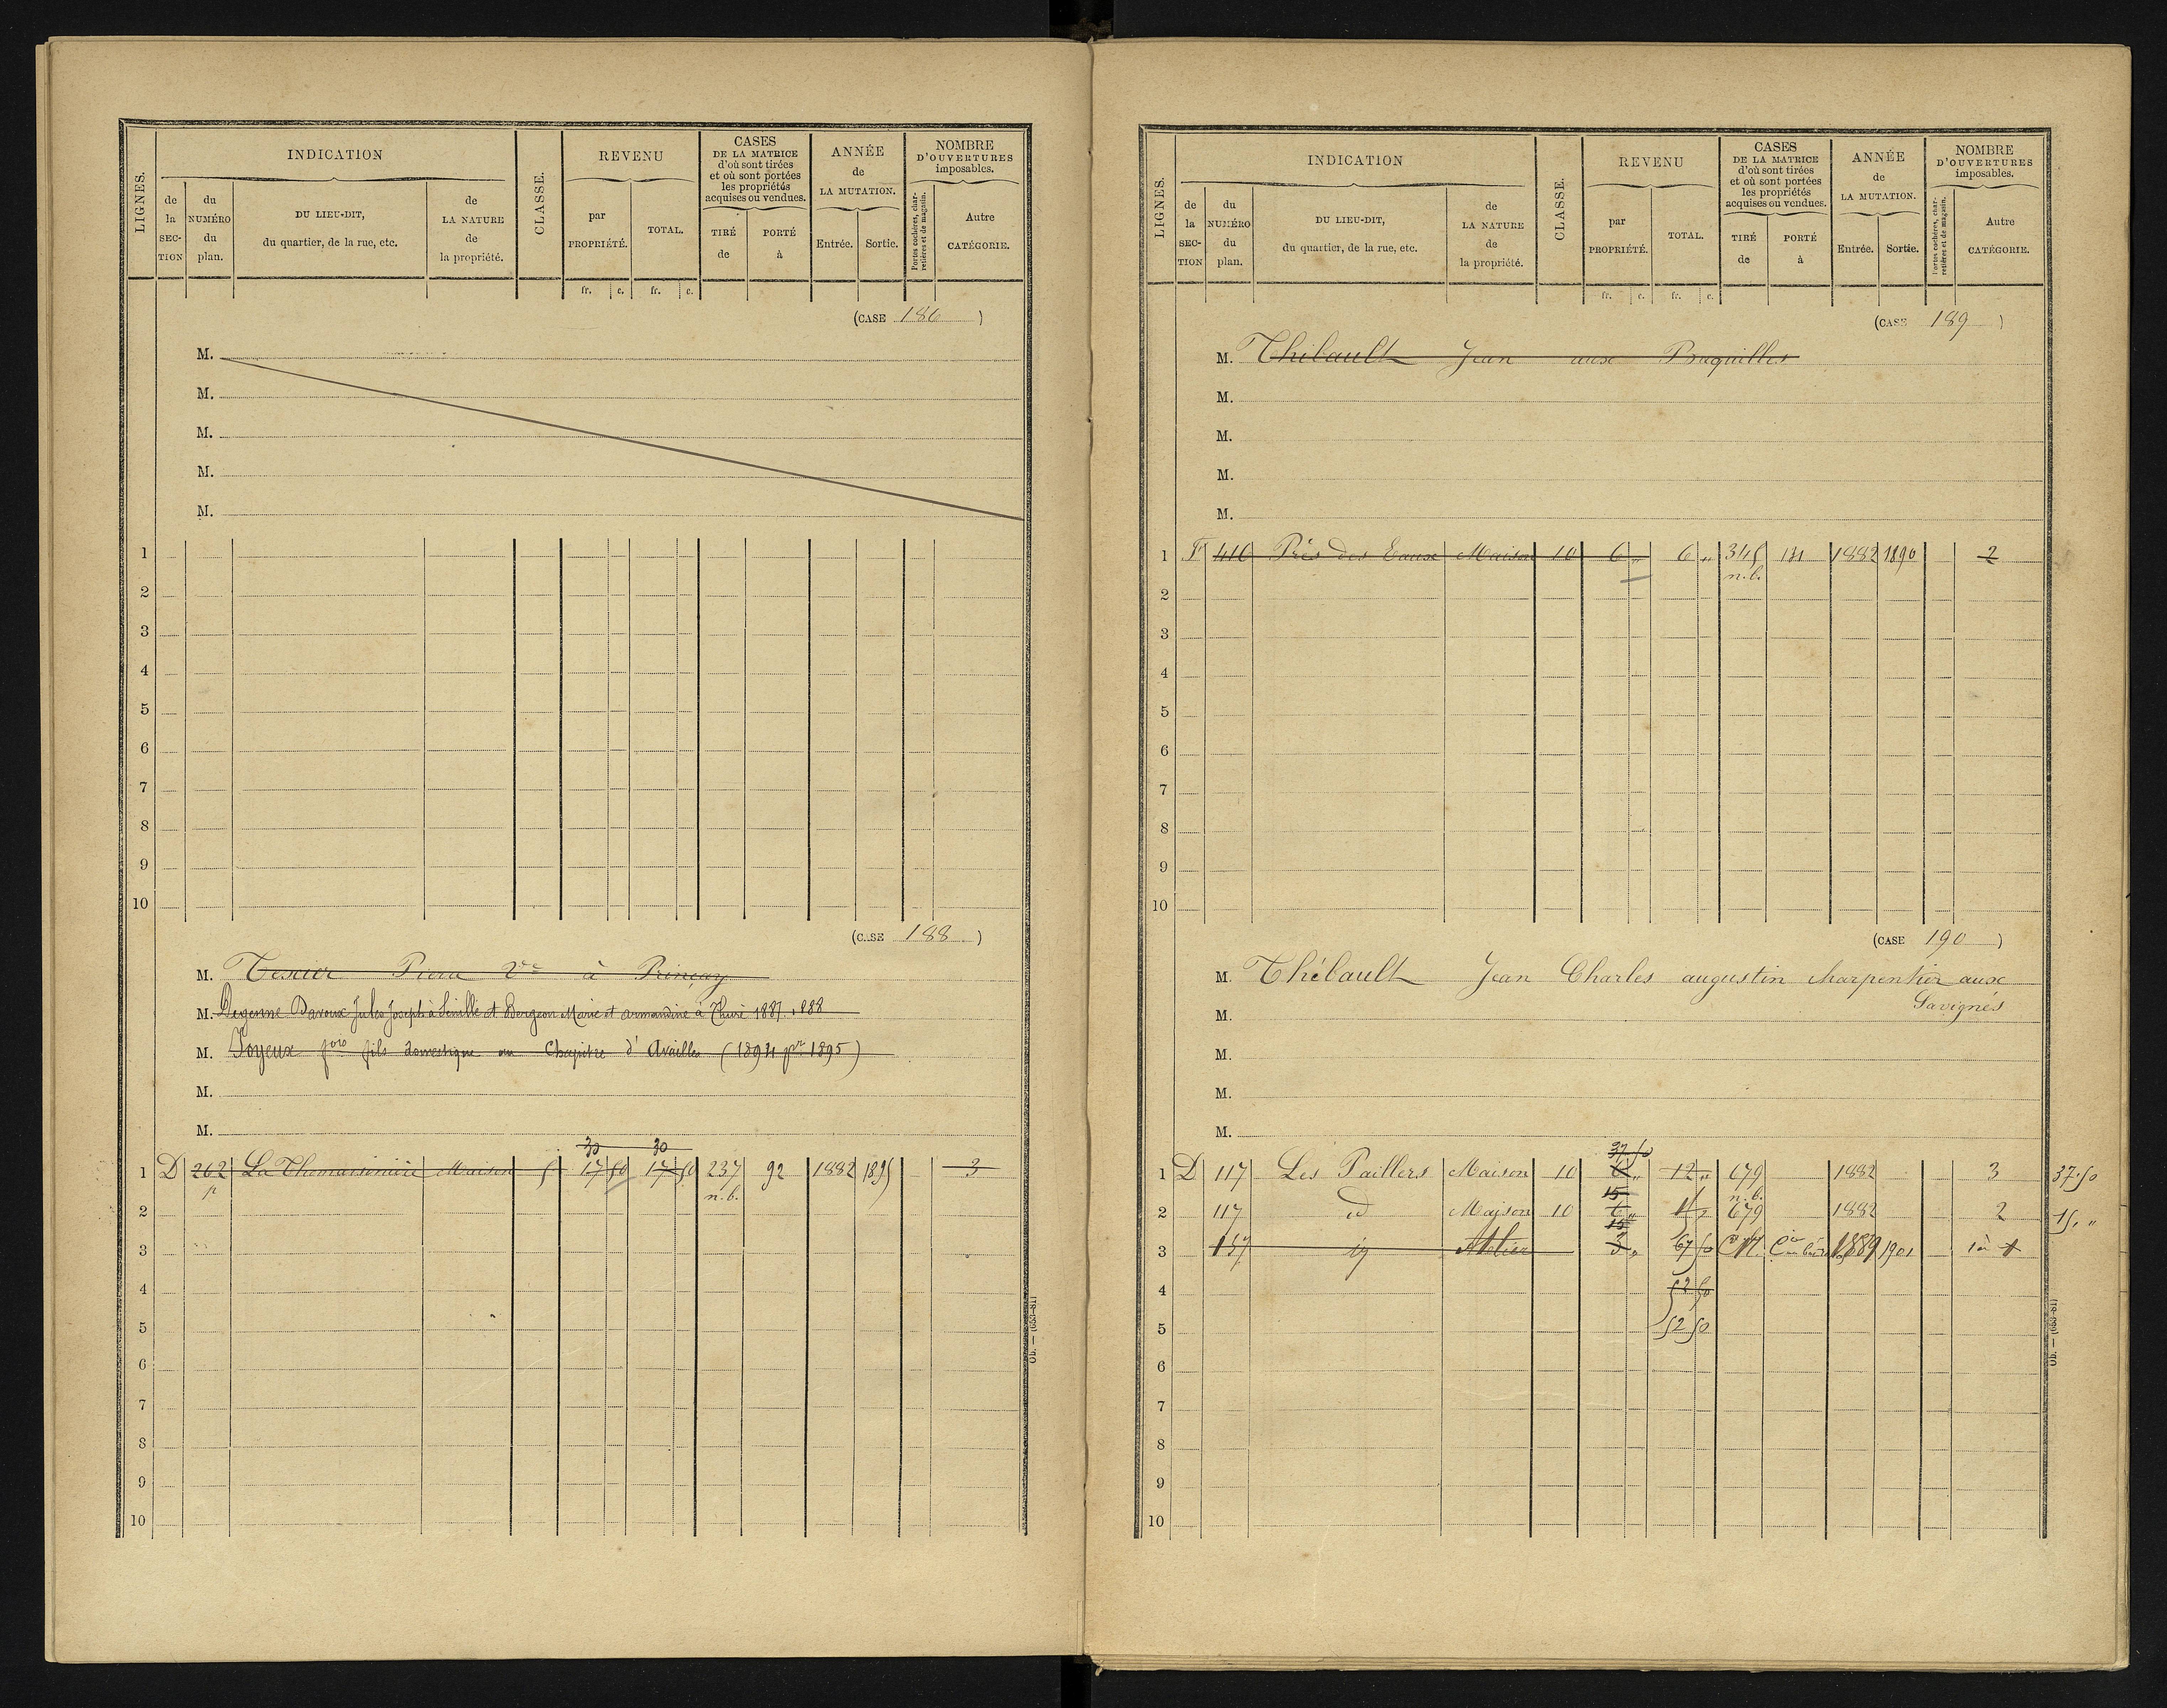 LIGNES.
INDICATION
de la SECTION
du NUMÉRO du plan.
DU LIEU-DIT, du quartier, de la rue, etc.
de LA NATURE de la propriété.
CLASSE.
REVENU
par PROPRIÉTÉ.
TOTAL.
CASES DE LA MATRICE d'où sont tirées et où sont portées les propriétés acquises ou vendues.
TIRÉ de
PORTÉ à
ANNÉE de LA MUTATION.
Entrée.
Sortie.
NOMBRE D'OUVERTURES imposables.
Portes cochères, charretières et de magasin.
Autre CATÉGORIE.
fr. c. fr. c.
(CASE 186)
M.
M.
M.
M.
M.
1
2
3
4
5
6
7
8
9
10
(CASE 188)
M. Texier Pierre Vve à Prinçay
M. Degenne Baroux Jules Joseph à Senillé et Bergeon Marie et armandine à Thuré 1887. 1888
M. Joyeux fils domestique au Chapitre d'Availles (1894 pr 1895)
M.
M.
30 30
1 D 262 La Thomassinière Maison 5 17 50 17 50 237 92 1882 1895 3
p n.b.
2
3
4
5
6
7
8
9
10
Ob. — (693-81)
LIGNES.
INDICATION
de la SECTION
du NUMÉRO du plan.
DU LIEU-DIT, du quartier, de la rue, etc.
de LA NATURE de la propriété.
CLASSE.
REVENU
par PROPRIÉTÉ.
TOTAL.
CASES DE LA MATRICE d'où sont tirées et où sont portées les propriétés acquises ou vendues.
TIRÉ de
PORTÉ à
ANNÉE de LA MUTATION.
Entrée.
Sortie.
NOMBRE D'OUVERTURES imposables.
Portes cochères, charretières et de magasin.
Autre CATÉGORIE.
fr. c. fr. c.
(CASE 189)
M. Thibault Jean aux Braguilles
M.
M.
M.
M.
1 F 416 Prés des Eaux Maison 10 6 „ 6 „ 345 131 1882 1890 2
n.b.
2
3
4
5
6
7
8
9
10
(CASE 190)
M. Thébault Jean Charles augustin charpentier aux
Savignés
M.
M.
M.
M.
37 50
1 D 117 Les Paillers Maison 10 6 „ 12 „ 679 1882 3 37.50
15 n.b.
2 117 id Maison 10 6 „ 679 1882 2 15, „
15
3 157 id Atelier 3 „ 67 50 1889 1901
4 52 50
5 52 50
6
7
8
9
10
Ob. — (693-81)